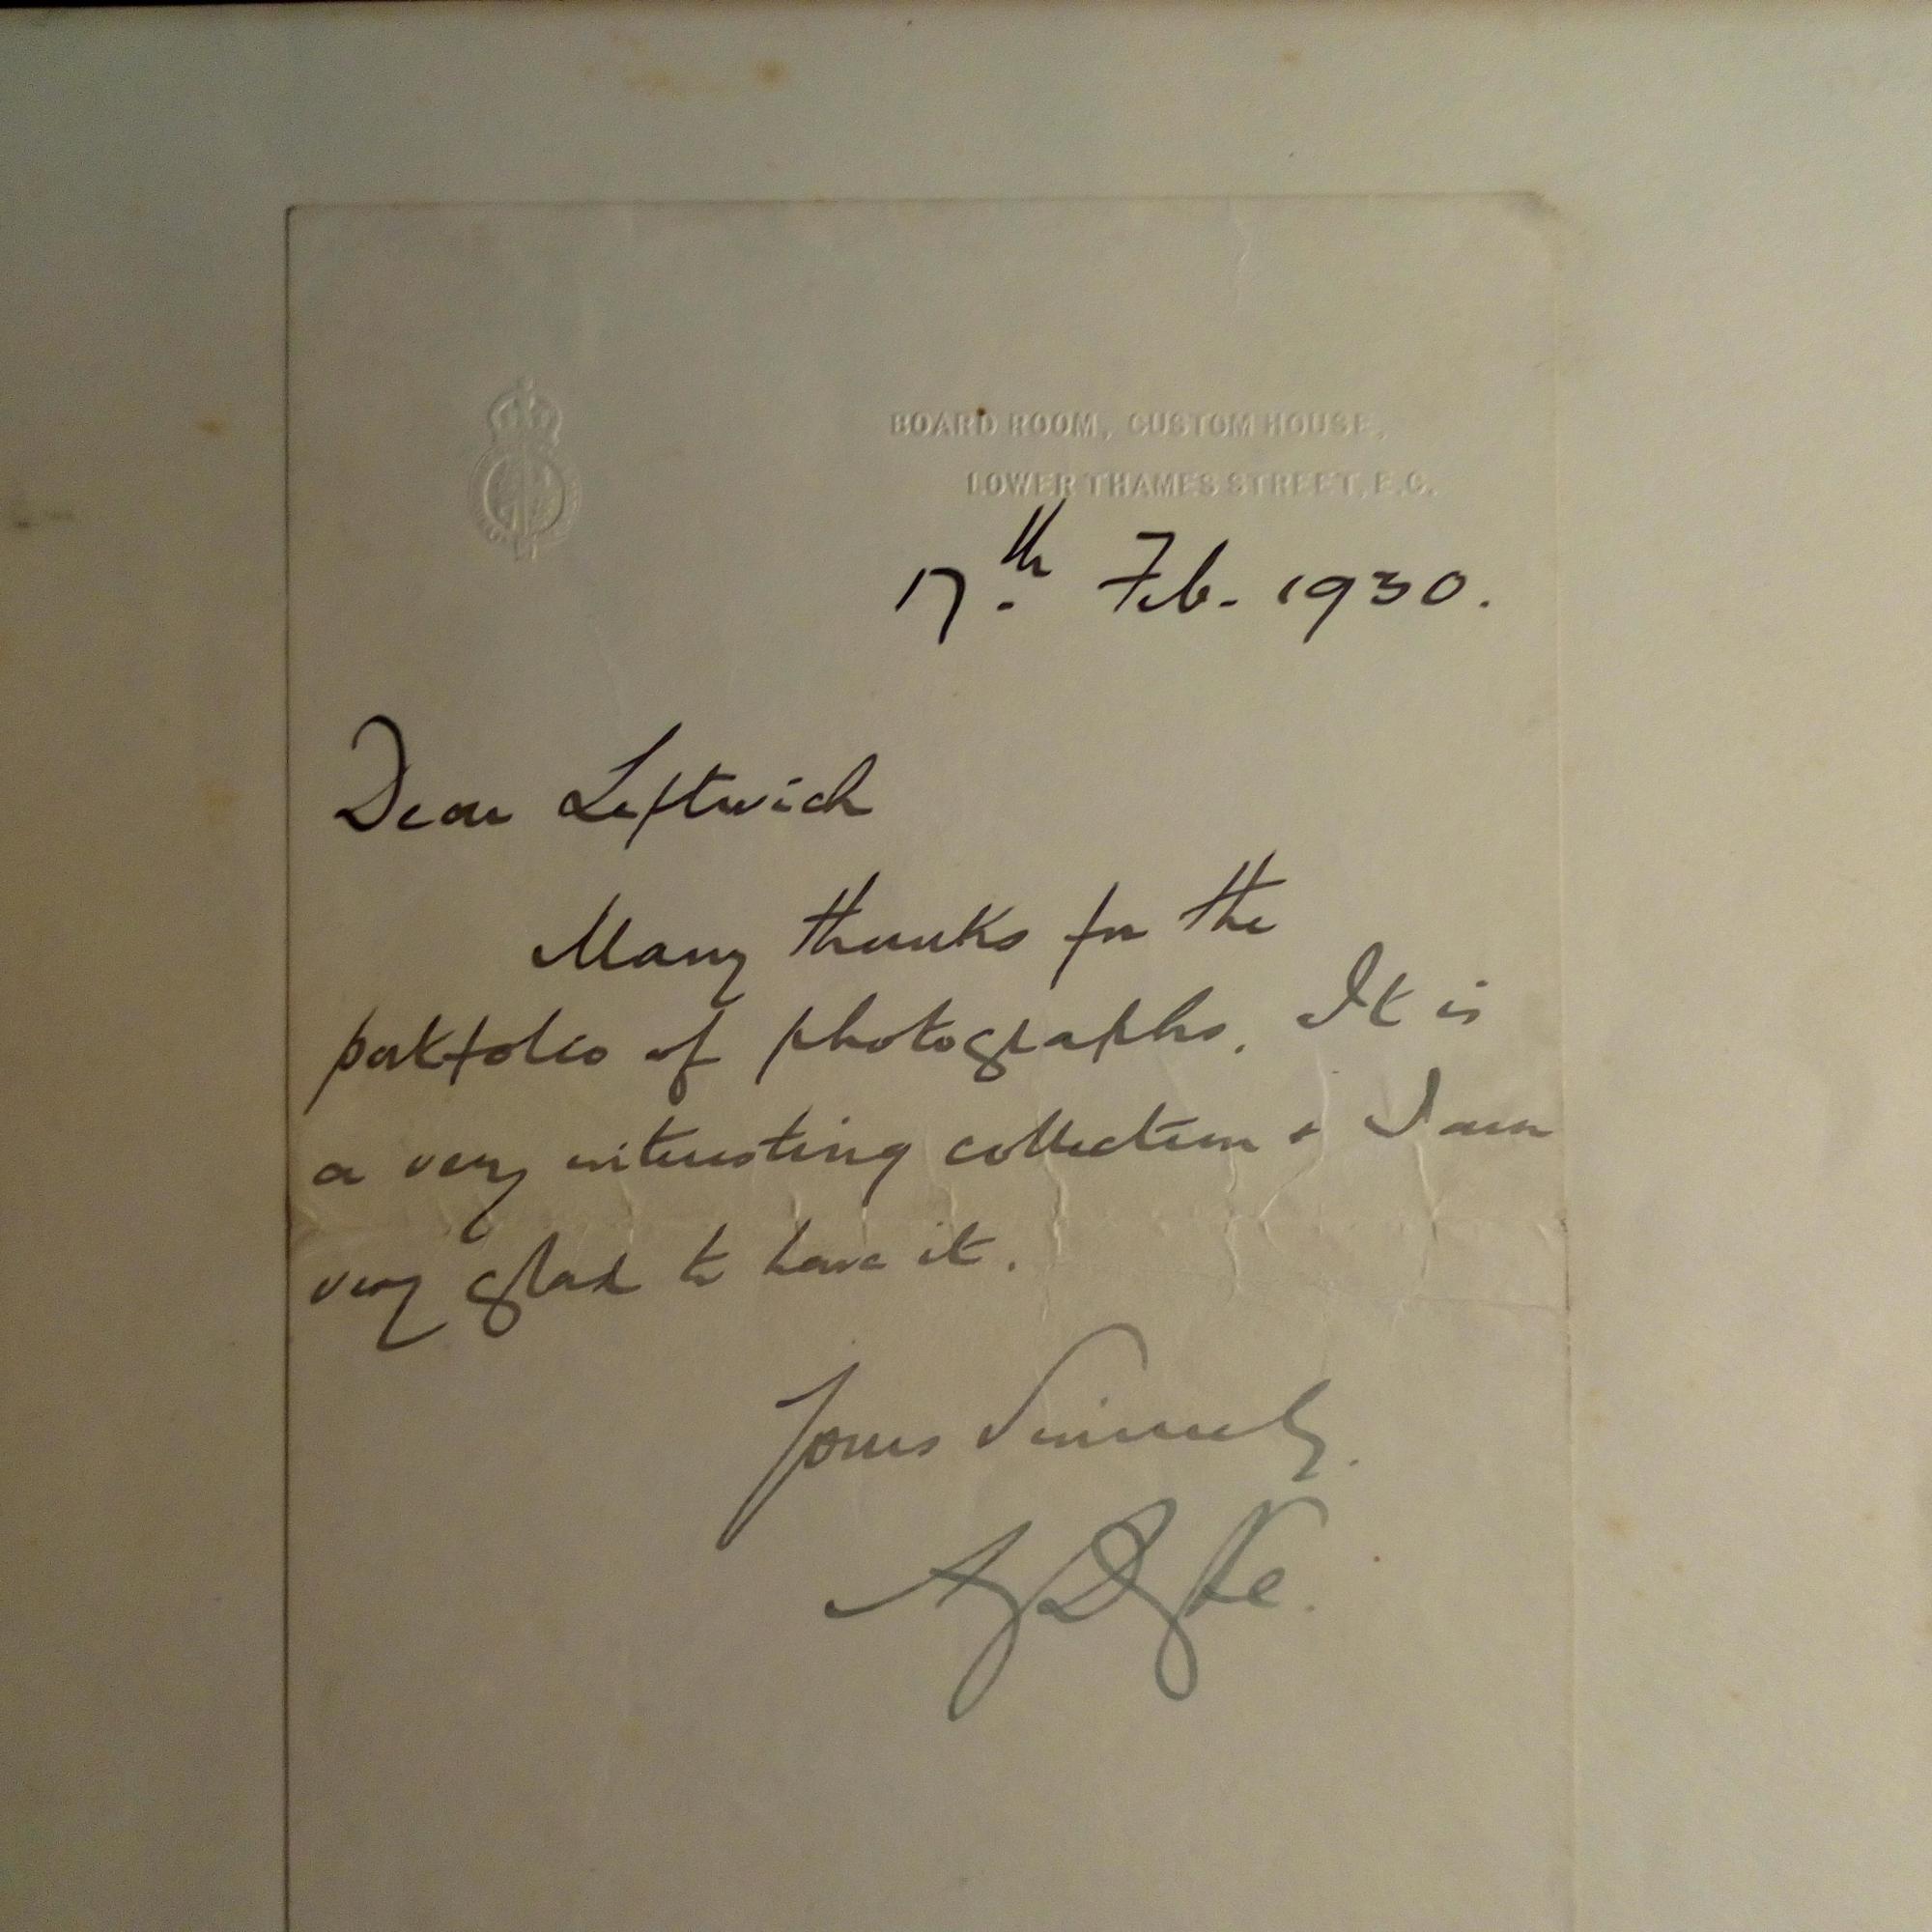 BOARD ROOM, CUSTOM HOUSE,
LOWER THAMES STREET, E.C.
17th Feb. 1930.
Dear Leftwich
Many thanks for the
portfolio of photographs. It is
a very interesting collection + I am
very glad to have it.
Yours Sincerely.